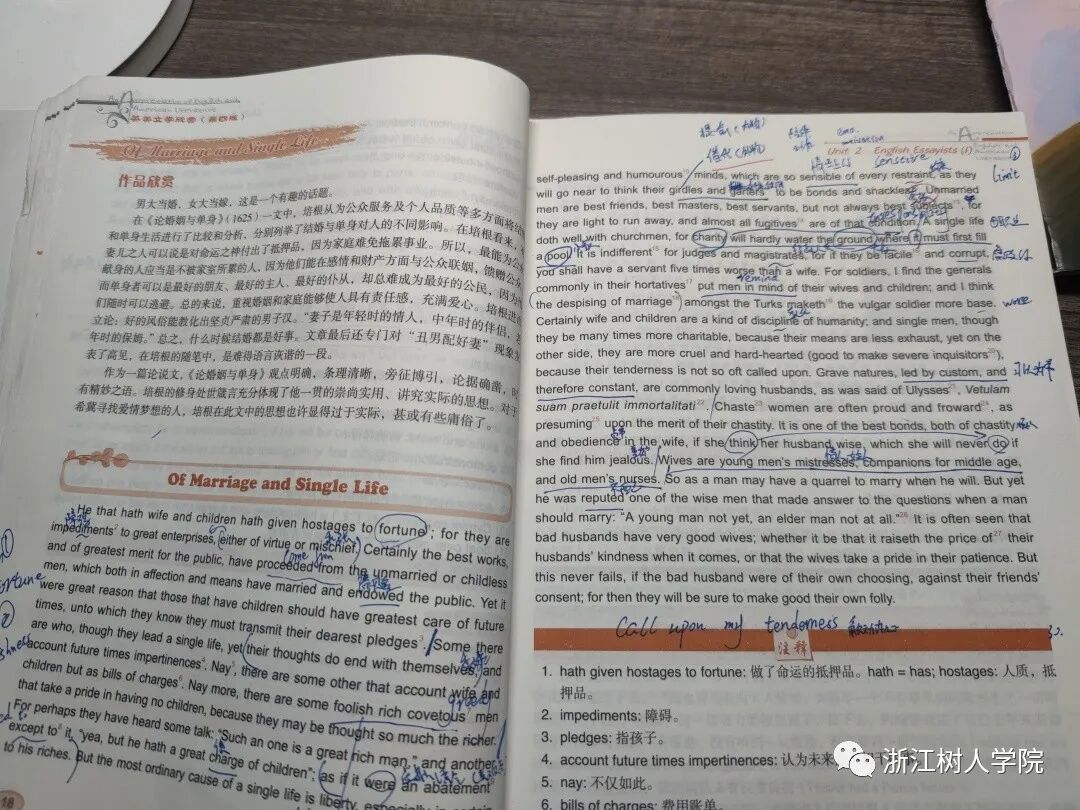 An Appreciation of English and
American Literature
英美文学欣赏(第四版)
Of Marriage and Single Life
作品欣赏
男大当婚、女大当嫁,这是一个有趣的话题。
在《论婚姻与单身》(1625)一文中,培根从公众服务及个人品质等多方面将
和单身生活进行了比较和分析,分别列举了结婚与单身对人的不同影响。在培根看来,
妻儿之人可以说是对命运之神付出了抵押品,因为家庭难免拖累事业。所以,最能为公
献身的人应当是不被家室所累的人,因为他们能在感情和财产方面与公众联姻,馈赠公众
而单身者可以是最好的朋友、最好的主人、最好的仆从,却总难成为最好的公民,因为
们随时可以逃避。总的来说,重视婚姻和家庭能够使人具有责任感,充满爱心。培根进
立论:好的风俗能教化出坚贞严肃的男子汉。“妻子是年轻时的情人,中年时的伴侣,
年时的保姆。”总之,什么时候结婚都是好事。文章最后还专门对“丑男配好妻”现象
表了高见,在培根的随笔中,是难得语言诙谐的一段。
作为一篇论说文,《论婚姻与单身》观点明确,条理清晰,旁征博引,论据确凿,时
有精妙之语。培根的修身处世箴言充分体现了他一贯的崇尚实用、讲究实际的思想。对于
希冀寻找爱情梦想的人,培根在此文中的思想也许显得过于实际,甚或有些庸俗了。
Of Marriage and Single Life
He that hath wife and children hath given hostages to fortune¹; for they are
impediments² to great enterprises, either of virtue or mischief. Certainly the best works,
and of greatest merit for the public, have proceeded from the unmarried or childless
men, which both in affection and means have married and endowed the public. Yet it
were great reason that those that have children should have greatest care of future
times, unto which they know they must transmit their dearest pledges³. Some there
are who, though they lead a single life, yet their thoughts do end with themselves, and
account future times impertinences⁴. Nay⁵, there are some other that account wife and
children but as bills of charges⁶. Nay more, there are some foolish rich covetous⁷ men
that take a pride in having no children, because they may be thought so much the richer.
For perhaps they have heard some talk: "Such an one is a great rich man," and another
except to⁸ it, "yea, but he hath a great charge of children"; as if it were an abatement⁹
to his riches. But the most ordinary cause of a single life is liberty, especially in certain
18
Unit 2 English Essayists (I)
limit
self-pleasing and humourous¹⁰ minds, which are so sensible of every restraint, as they
will go near to think their girdles and garters to be bonds and shackles. Unmarried
men are best friends, best masters, best servants, but not always best subjects, for
they are light to run away, and almost all fugitives are of that condition. A single life
doth well with churchmen, for charity will hardly water the ground where it must first fill
a pool. It is indifferent¹⁵ for judges and magistrates, for if they be facile¹⁶ and corrupt,
you shall have a servant five times worse than a wife. For soldiers, I find the generals
remind
commonly in their hortatives¹⁷ put men in mind of their wives and children; and I think
the despising of marriage amongst the Turks maketh the vulgar soldier more base. worse
Certainly wife and children are a kind of discipline of humanity; and single men, though
they be many times more charitable, because their means are less exhaust, yet on the
other side, they are more cruel and hard-hearted (good to make severe inquisitors²⁰),
because their tenderness is not so oft called upon. Grave natures, led by custom, and
therefore constant, are commonly loving husbands, as was said of Ulysses²¹, Vetulam
suam praetulit immortalitati²². Chaste²³ women are often proud and froward²⁴, as
presuming²⁵ upon the merit of their chastity. It is one of the best bonds, both of chastity
and obedience in the wife, if she think her husband wise, which she will never do if
she find him jealous. Wives are young men's mistresses, companions for middle age,
and old men's nurses. So as a man may have a quarrel to marry when he will. But yet
he was reputed one of the wise men that made answer to the questions when a man
should marry: "A young man not yet, an elder man not at all."²⁶ It is often seen that
bad husbands have very good wives; whether it be that it raiseth the price of²⁷ their
husbands' kindness when it comes, or that the wives take a pride in their patience. But
this never fails, if the bad husband were of their own choosing, against their friends'
consent; for then they will be sure to make good their own folly.
Call upon my tenderness
注释
1. hath given hostages to fortune: 做了命运的抵押品。hath = has; hostages: 人质,抵
押品。
2. impediments: 障碍。
3. pledges: 指孩子。
4. account future times impertinences: 认为未来
5. nay: 不仅如此。
6. bills of charges: 费用账单。
浙江树人学院